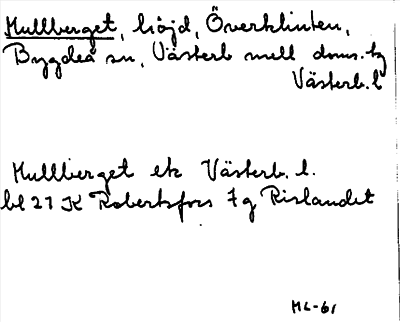 Hullberget, höjd, Överklinten,
Bygdeå sn, Västerb mell doms. tg
Västerb. l
Hullberget ek Västerb. l.
bl 21 K Robertsfors 7g Rislandet
ML-61